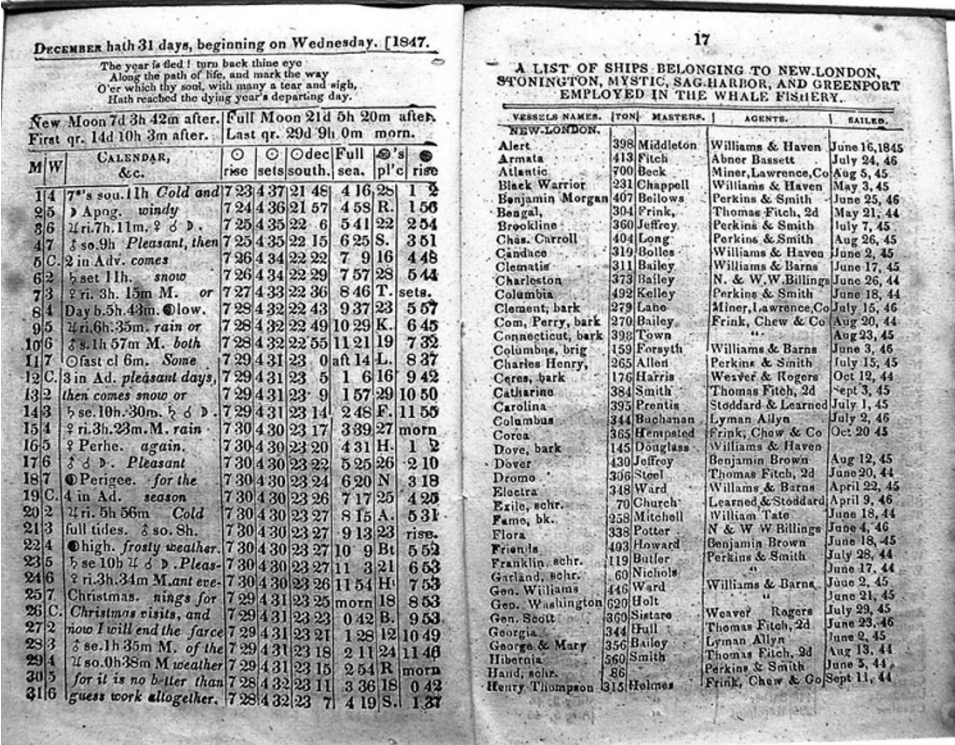 DECEMBER hath 31 days, beginning on Wednesday. [1847.
The year is fled! turn back thine eye
Along the path of life, and mark the way
O'er which thy soul, with many a tear and sigh,
Hath reached the dying year's departing day.
New Moon 7d 3h 42m after. Full Moon 21d 5h 20m after.
First qr. 14d 10h 3m after. Last qr. 29d 9h 0m morn.
M W CALENDAR, &c. ☉ rise ☉ sets ☉dec south. Full sea. 's pl'c rise
1 4 7*'s sou. 11h Cold and 7 23 4 37 21 48 4 16 28 1 2
2 5 ☽ Apog. windy 7 24 4 36 21 57 4 58 R. 1 56
3 6 ♃ri.7h.11m. ♀ ☌ ☽. 7 25 4 35 22 6 5 41 22 2 54
4 7 ♂ so.9h Pleasant, then 7 25 4 35 22 15 6 25 S. 3 51
5 C. 2 in Adv. comes 7 26 4 34 22 22 7 9 16 4 48
6 2 ♄set 11h. snow 7 26 4 34 22 29 7 57 28 5 44
7 3 ♀ ri. 3h. 15m M. or 7 27 4 33 22 36 8 46 T. sets.
8 4 Day b.5h.43m. low. 7 28 4 32 22 43 9 37 23 5 57
9 5 ♃ri.6h.35m. rain or 7 28 4 32 22 49 10 29 K. 6 45
10 6 ♂s.1h 57m M. both 7 28 4 32 22 55 11 21 19 7 32
11 7 ☉fast cl 6m. Some 7 29 4 31 23 0 aft 14 L. 8 37
12 C. 3 in Ad. pleasant days, 7 29 4 31 23 5 1 6 16 9 42
13 2 then comes snow or 7 29 4 31 23 9 1 57 29 10 50
14 3 ♄ se.10h.30m. ♄ ☌ ☽. 7 29 4 31 23 14 2 48 F. 11 55
15 4 ♀ ri.3h.23m.M. rain 7 30 4 30 23 17 3 39 27 morn
16 5 ☽ Perhe. again. 7 30 4 30 23 20 4 31 H. 1 2
17 6 ♂ ☌ ☽. Pleasant 7 30 4 30 23 22 5 25 26 2 10
18 7 Perigee. for the 7 30 4 30 23 24 6 20 N 3 18
19 C. 4 in Ad. season 7 30 4 30 23 26 7 17 25 4 25
20 2 ♃ ri. 5h 56m Cold 7 30 4 30 23 27 8 15 A. 5 31
21 3 full tides. ♂ so. 8h. 7 30 4 30 23 27 9 13 23 rise.
22 4 high. frosty weather. 7 30 4 30 23 27 10 9 Bt 5 52
23 5 ♄ se 10h ♃ ☌ ☽. Pleas- 7 30 4 30 23 27 11 3 21 6 53
24 6 ♀ ri.3h.34m M.ant eve- 7 30 4 30 23 26 11 54 H 7 53
25 7 Christmas. nings for 7 29 4 31 23 25 morn 18 8 53
26 C. Christmas visits, and 7 29 4 31 23 23 0 42 B. 9 53
27 2 now I will end the farce 7 29 4 31 23 21 1 28 12 10 49
28 3 ♂ se.1h 35m M. of the 7 29 4 31 23 18 2 11 24 11 46
29 4 ♃ so.0h38m M weather 7 29 4 31 23 15 2 54 R morn
30 5 for it is no better than 7 28 4 32 23 11 3 36 18 0 42
31 6 guess work altogether. 7 28 4 32 23 7 4 19 S. 1 37
17
A LIST OF SHIPS BELONGING TO NEW-LONDON,
STONINGTON, MYSTIC, SAG-HARBOR, AND GREENPORT
EMPLOYED IN THE WHALE FISHERY.
VESSELS NAMES. TON MASTERS. AGENTS. SAILED.
NEW-LONDON.
Alert 398 Middleton Williams & Haven June 16, 1845
Armata 413 Fitch Abner Bassett July 24, 46
Atlantic 700 Beck Miner, Lawrence, Co Aug 5, 45
Black Warrior 231 Chappell Williams & Haven May 3, 45
Benjamin Morgan 407 Bellows Perkins & Smith June 25, 46
Bengal, 304 Frink, Thomas Fitch, 2d May 21, 44
Brookline 360 Jeffrey Perkins & Smith July 7, 45
Chas. Carroll 404 Long Perkins & Smith Aug 26, 45
Candace 319 Bolles Williams & Haven June 2, 45
Clematis 311 Bailey Williams & Barns June 17, 45
Charleston 373 Bailey N. & W.W. Billings June 26, 44
Columbia 492 Kelley Perkins & Smith June 18, 44
Clement, bark 279 Lane Miner, Lawrence, Co July 15, 46
Com, Perry, bark 270 Bailey Frink, Chew & Co Aug 20, 44
Connecticut, bark 398 Town " " Aug 23, 45
Columbus, brig 159 Forsyth Williams & Barns June 3, 46
Charles Henry, 265 Allen Perkins & Smith July 15, 45
Ceres, bark 176 Harris Weaver & Rogers Oct 12, 44
Catharine 384 Smith Thomas Fitch, 2d Sept 3, 45
Carolina 395 Prentis Stoddard & Learned July 1, 45
Columbus 344 Buchanan Lyman Allyn July 2, 46
Corea 365 Hempsted Frink, Chow & Co Oct 20 45
Dove, bark 145 Douglass Williams & Haven
Dover 430 Jeffrey Benjamin Brown Aug 12, 45
Dromo 306 Steel Thomas Fitch, 2d June 20, 44
Electra 348 Ward Willams & Barns April 22, 45
Exile, schr. 70 Church Learned & Stoddard April 9, 46
Fame, bk. 258 Mitchell William Tate June 18, 44
Flora 338 Potter N & W W Billings June 4, 46
Friends 403 Howard Benjamin Brown June 18, 45
Franklin, schr. 119 Butler Perkins & Smith July 28, 44
Garland, schr. 60 Nichols " June 17, 44
Gen. Williams 446 Ward Williams & Barns June 2, 45
Geo. Washington 620 Holt " June 21, 45
Gen. Scott 360 Sistare Weaver Rogers July 29, 45
Georgia 344 Hull Thomas Fitch, 2d June 23, 46
George & Mary 356 Bailey Lyman Allyn June 2, 45
Hibernia 560 Smith Thomas Fitch, 2d Aug 13, 44
Hand, schr. 86 Perkins & Smith June 5, 44
Henry Thompson 315 Holmes Frink, Chew & Co Sept 11, 44